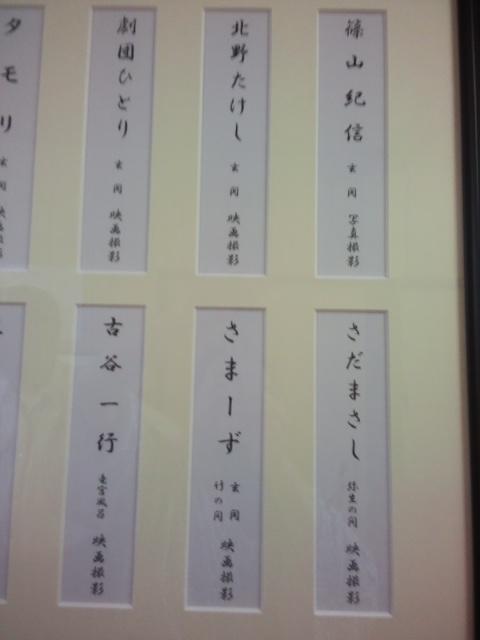 篠山紀信
玄関 写真撮影
北野たけし
玄関 映画撮影
劇団ひとり
玄関 映画撮影
タモリ
玄関 映画撮影
さだまさし
弥生の間 映画撮影
さまーず
玄関
竹の間
映画撮影
古谷一行
映画撮影